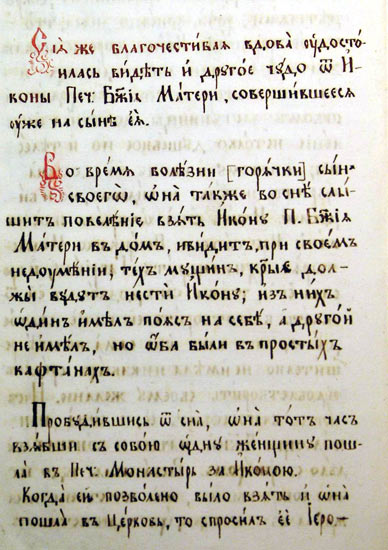 Сїѧ же благочестивая вдова ѹдосто-
илась видѣть и другое чудо ѿ И-
коны Печ: Бжїѧ Матери, совершившееся
ѹже на сынѣ еѧ.
Во времѧ болѣзни [горѧчки] сын-
а своегѡ, ѡна также во снѣ слы-
шит повелѣнїе взѧть Икону П. Бжїѧ
Матери въ дом, и видит, при своем
недоумѣнїи, тѣх мущин, кᲂрыѧ дол-
жны будут нести Икону; из них
ѡдин имѣл поѧс на себѣ, а другой
не имѣл, но ѡба были в простых
кафтанах.
Пробудившись ѿ сна, ѡна тотъ час
взѧвши съ собою ѡдну женщину пош-
ла въ Печ: Монастырь за Иконою.
Когда ей позволено было взѧть и ѡна
пошла въ Церковь, то спросил её Iеро-